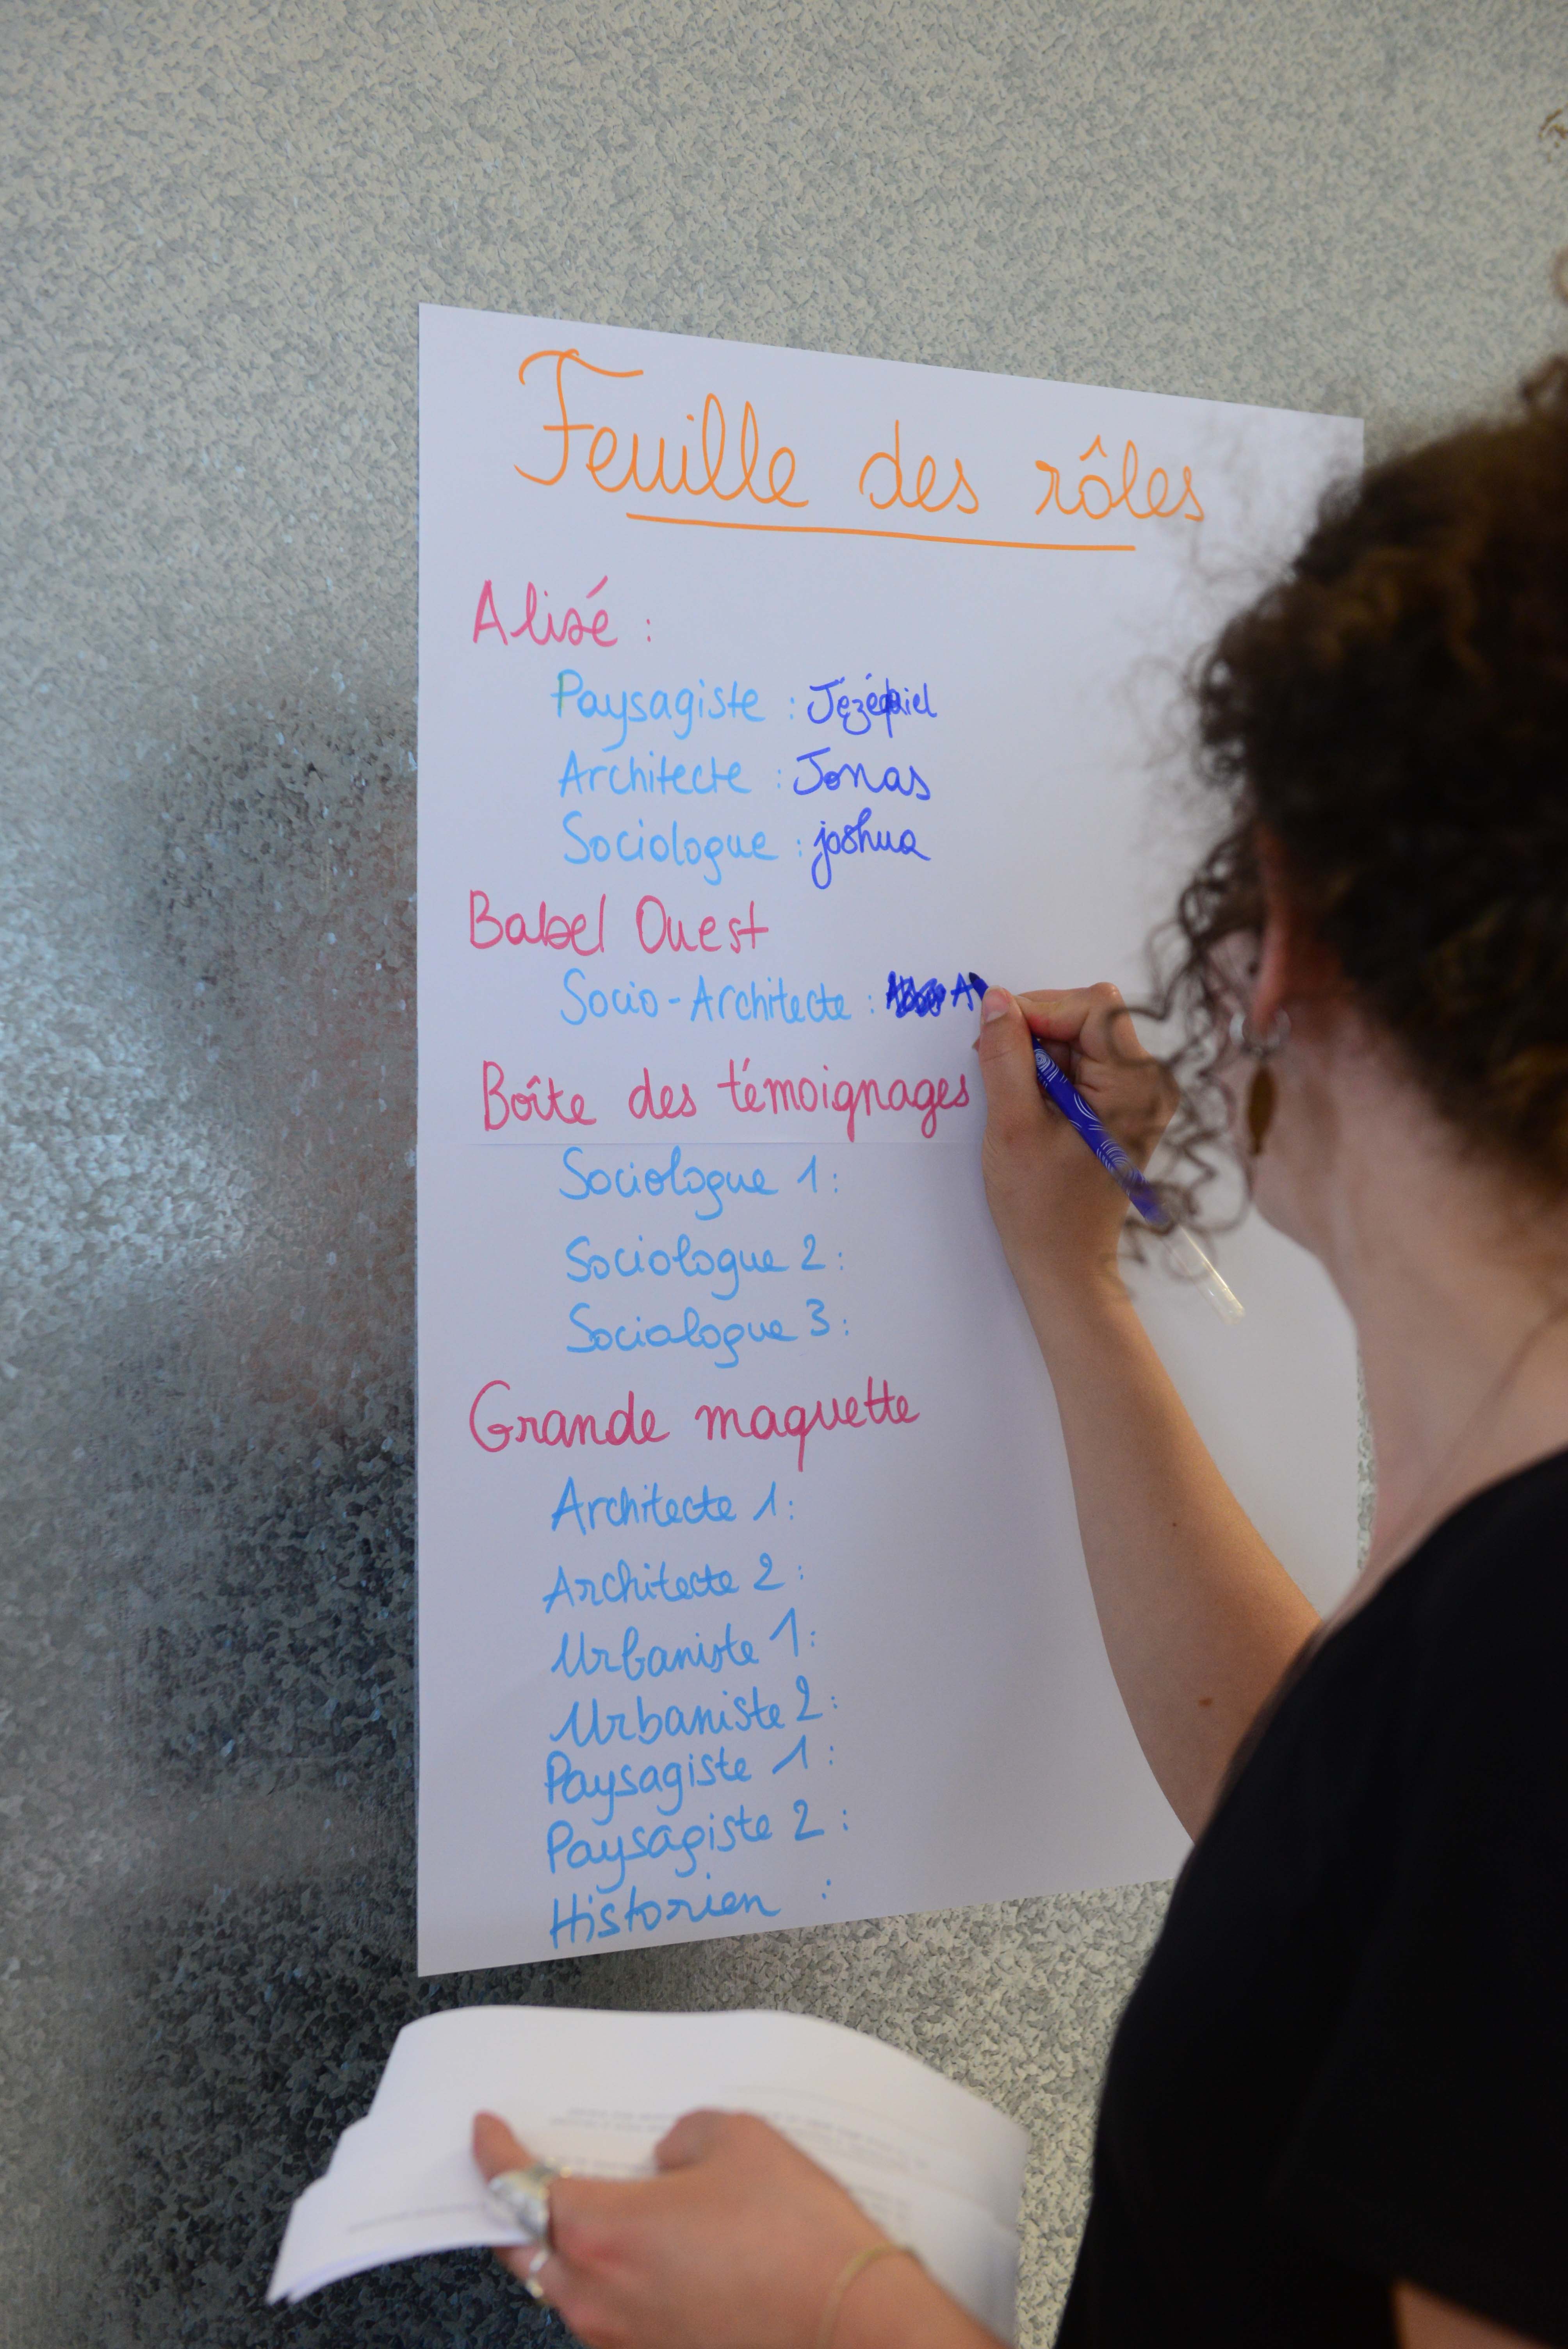 Feuille des rôles
Alisé :
Paysagiste : Jézéquiel
Architecte : Jonas
Sociologue : joshua
Babel Ouest
Socio-Architecte : A
Boîte des témoignages
Sociologue 1 :
Sociologue 2 :
Sociologue 3 :
Grande maquette
Architecte 1 :
Architecte 2 :
Urbaniste 1 :
Urbaniste 2 :
Paysagiste 1 :
Paysagiste 2 :
Historien :